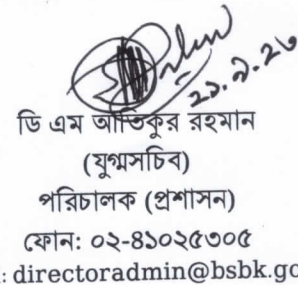 ২১.৯.২৩
ডি এম আতিকুর রহমান
(যুগ্মসচিব)
পরিচালক (প্রশাসন)
ফোন: ০২-৪১০২৫৩০৫
: directoradmin@bsbk.gc